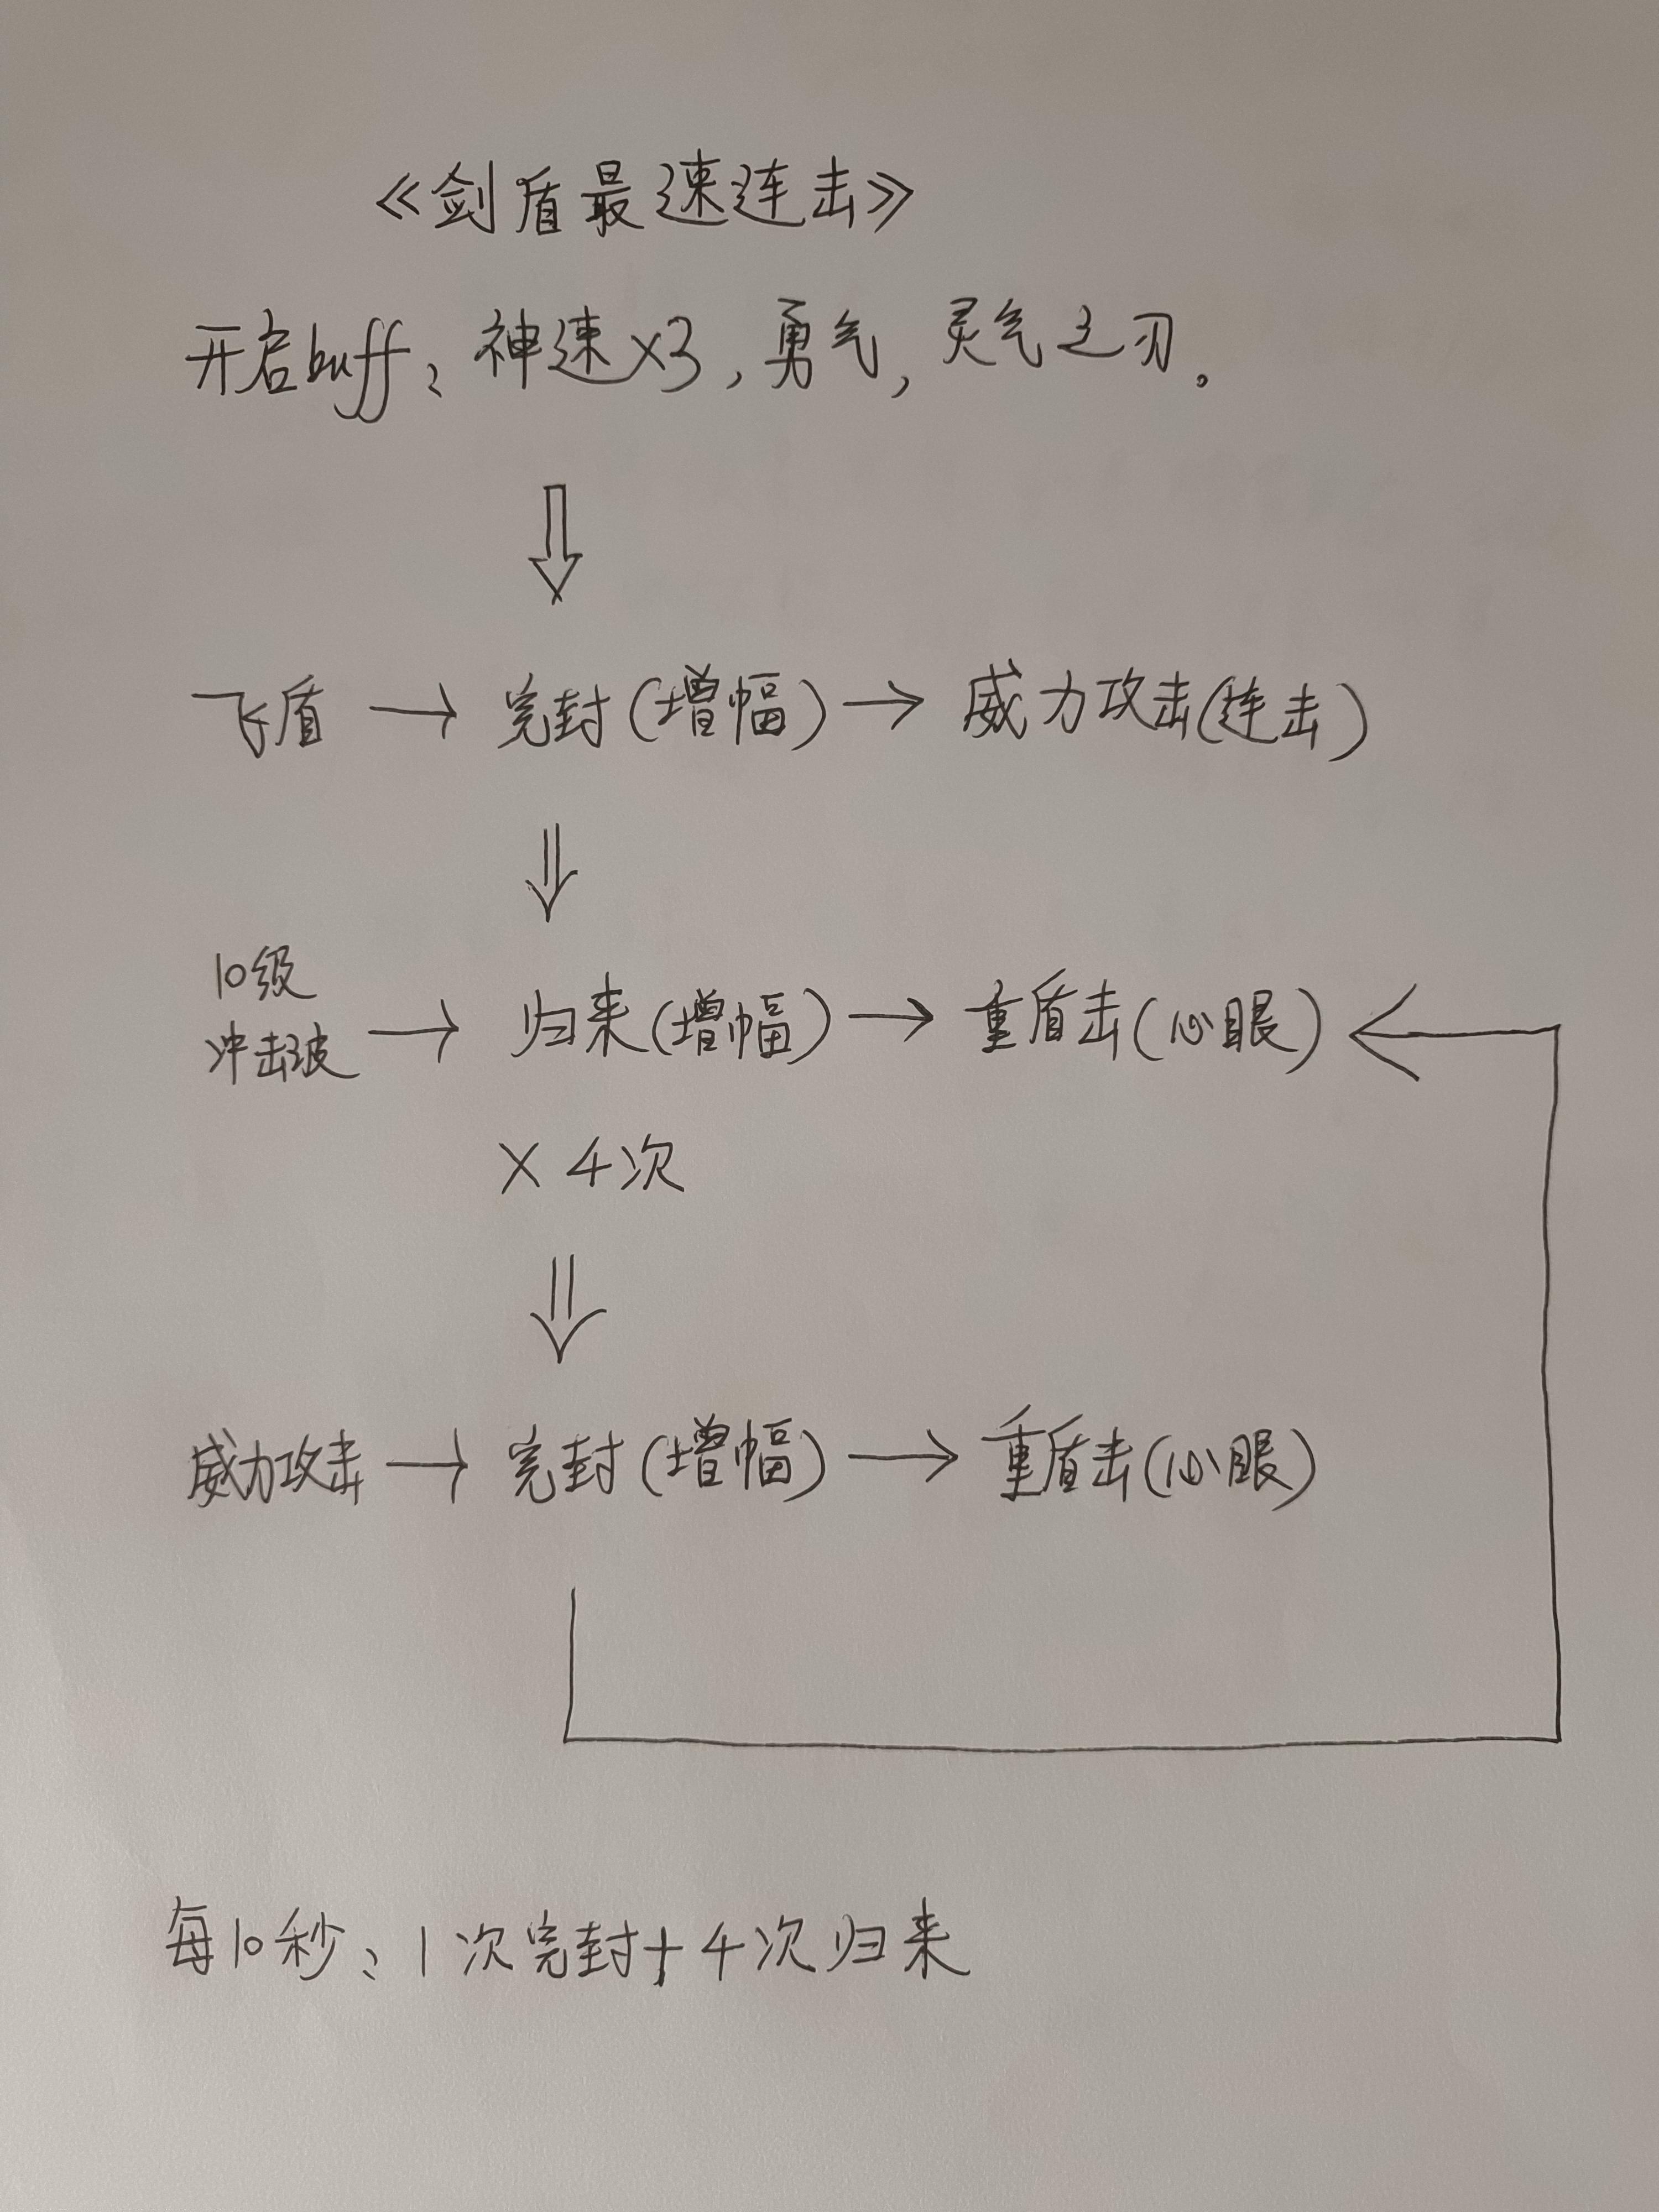 《剑盾最速连击》
开启buff：神速×3，勇气，灵气之刃。
飞盾→完封(增幅)→威力攻击(连击)
10级
冲击波→归来(增幅)→重盾击(心眼)
×4次
威力攻击→完封(增幅)→重盾击(心眼)
每10秒：1次完封+4次归来